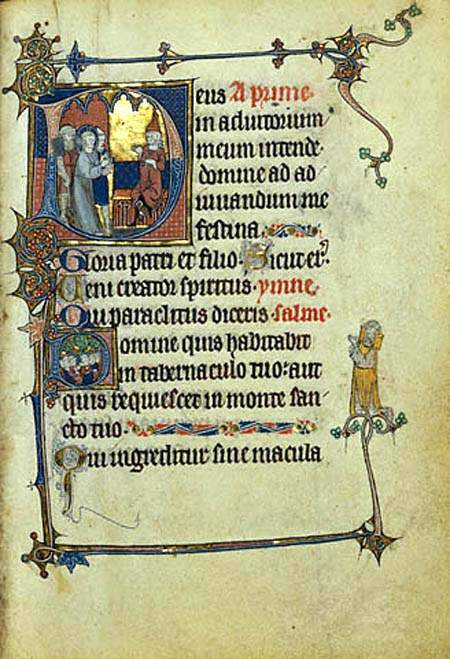 Deus A prime·
in adiutorium
meum intende·
domine ad ad
iuuandum me
festina·
Gloria patri et filio· Sicut er̾
Veni creator spiritus· ymne
Qui paraclitus diceris· salme·
Domine quis habitabit
in tabernaculo tuo: aut
quis requiescet in monte san-
cto tuo·
Qui ingreditur sine macula